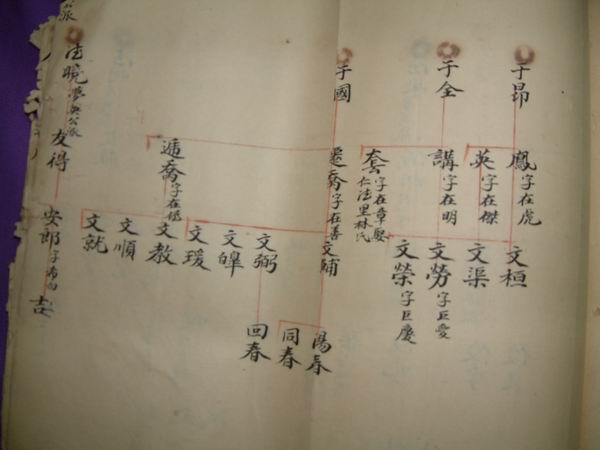 于昂
鳳字在虎
英字在傑
文桓
文渠
于全
講字在明
套字在章娶仁法里林氏
文勞字巨愛
文榮字巨慶
于國
遷喬字在善
遁喬字在
文輔
文弼
文皥
文瑗
文教
文順
文就
陽春
同春
回春
法曉
公派
友得
安郎